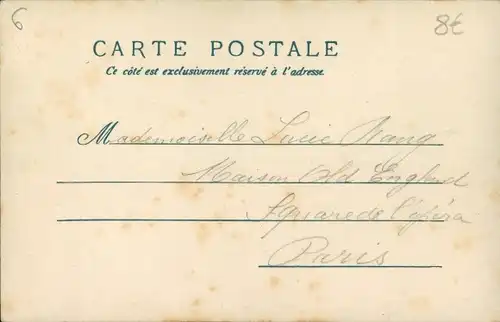 6
8€
CARTE POSTALE
Ce côté est exclusivement réservé à l'adresse.
Mademoiselle Lucie
Maison Old England
Square de l'opéra
Paris